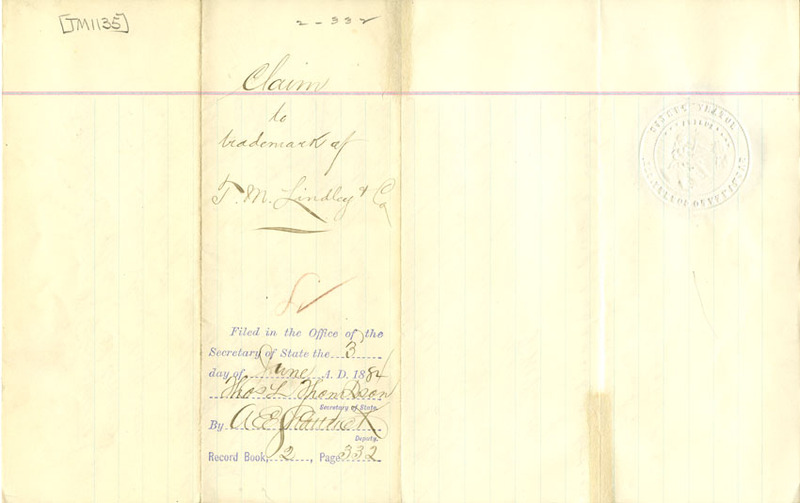 [TM1135]
2-332
Claim
to
trademark of
T. M. Lindley & Co
Filed in the Office of the
Secretary of State the 3
day of June A. D. 1884
Thos L Thompson
Secretary of State.
By A E
Deputy.
Record Book, 2, Page 332